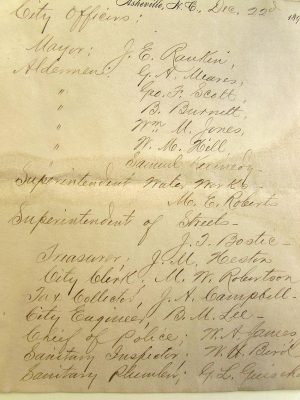 Asheville, N.C., Dec. 22d 189
City Officers;
Mayor; J. E. Rankin,
Aldermen; G. A. Mears,
" Geo. F. Scott,
" B. Burnett,
" Wm M. Jones,
" W. M. Hill,
" Samuel Kennedy.
Superintendent Water Works
M. E. Roberts
Superintendent of Streets-
J. T. Bostic-
Treasurer; J. M. Heston
City Clerk; M. W. Robertson
Tax Collector; J. A. Campbell-
City Engineer, B. M. Lee-
Chief of Police; W. A. James
Sanitary Inspector; W. H. Bird
Sanitary Plumber; G. L.